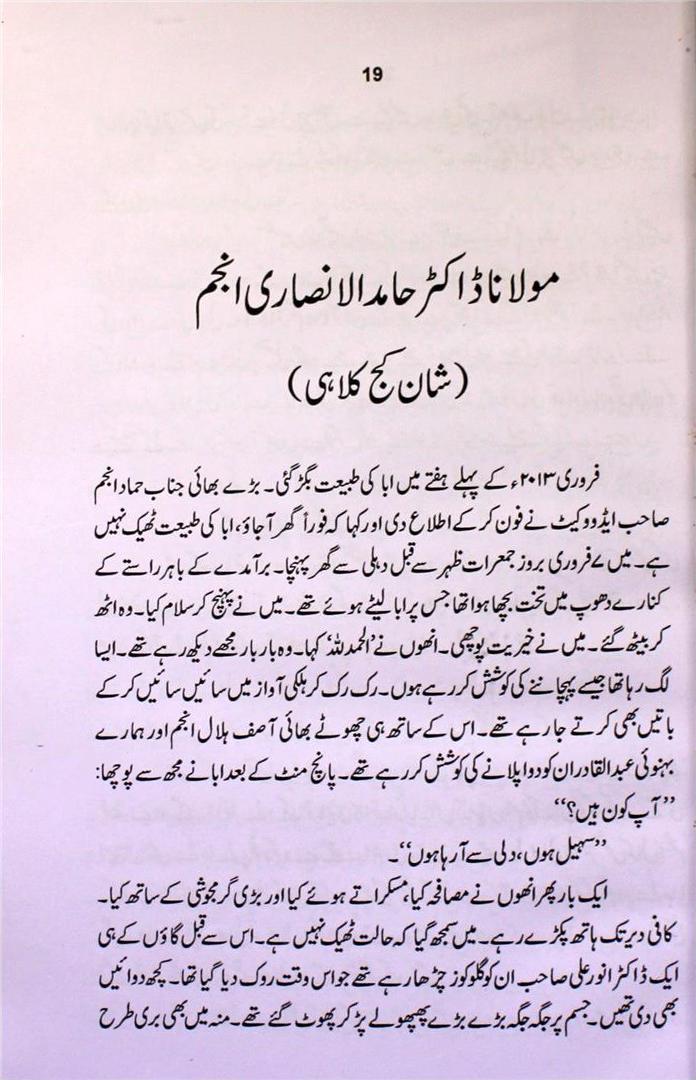 19
مولانا ڈاکٹر حامد الانصاری انجم
(شان کج کلاہی)
فروری ۲۰۱۳ء کے پہلے ہفتے میں ابا کی طبیعت بگڑ گئی۔ بڑے بھائی جناب حماد انجم
صاحب ایڈووکیٹ نے فون کر کے اطلاع دی اور کہا کہ فوراً گھر آجاؤ، ابا کی طبیعت ٹھیک نہیں
ہے۔ میں ۷ فروری بروز جمعرات ظہر سے قبل دہلی سے گھر پہنچا۔ برآمدے کے باہر راستے کے
کنارے دھوپ میں تخت بچھا ہوا تھا جس پر ابا لیٹے ہوئے تھے۔ میں نے پہنچ کر سلام کیا۔ وہ اٹھ
کر بیٹھ گئے۔ میں نے خیریت پوچھی۔ انھوں نے ’الحمدللہ‘ کہا۔ وہ بار بار مجھے دیکھ رہے تھے۔ ایسا
لگ رہا تھا جیسے پہچاننے کی کوشش کر رہے ہوں۔ رک رک کر ہلکی آواز میں سائیں سائیں کر کے
باتیں بھی کرتے جا رہے تھے۔ اس کے ساتھ ہی چھوٹے بھائی آصف ہلال انجم اور ہمارے
بہنوئی عبدالقادر ان کو دوا پلانے کی کوشش کر رہے تھے۔ پانچ منٹ کے بعد ابا نے مجھ سے پوچھا:
’’آپ کون ہیں؟‘‘
’’سہیل ہوں، دلی سے آرہا ہوں‘‘۔
ایک بار پھر انھوں نے مصافحہ کیا، مسکراتے ہوئے کیا اور بڑی گرمجوشی کے ساتھ کیا۔
کافی دیر تک ہاتھ پکڑے رہے۔ میں سمجھ گیا کہ حالت ٹھیک نہیں ہے۔ اس سے قبل گاؤں کے ہی
ایک ڈاکٹر انور علی صاحب ان کو گلوکوز چڑھا رہے تھے جو اس وقت روک دیا گیا تھا۔ کچھ دوائیں
بھی دی تھیں۔ جسم پر جگہ جگہ بڑے بڑے پھپھولے پڑ کر پھوٹ گئے تھے۔ منہ میں بھی بری طرح